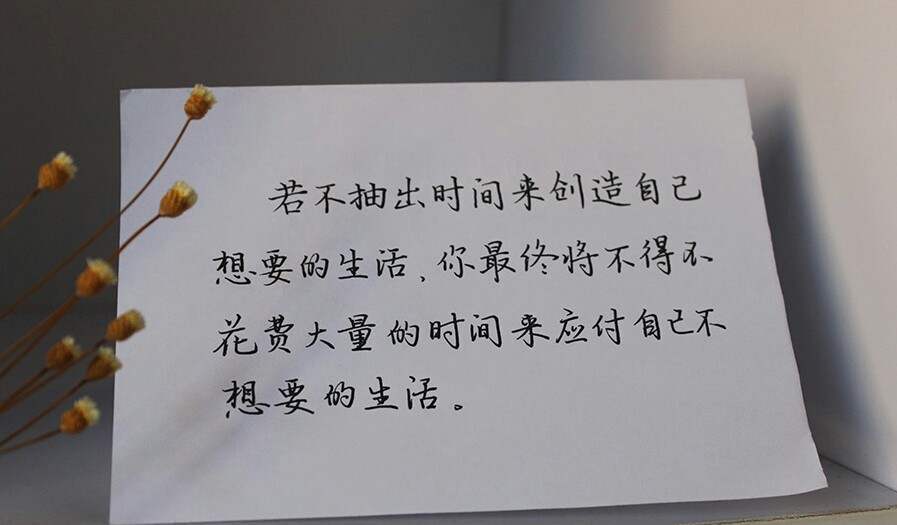 若不抽出时间来创造自己
想要的生活,你最终将不得不
花费大量的时间来应付自己不
想要的生活。